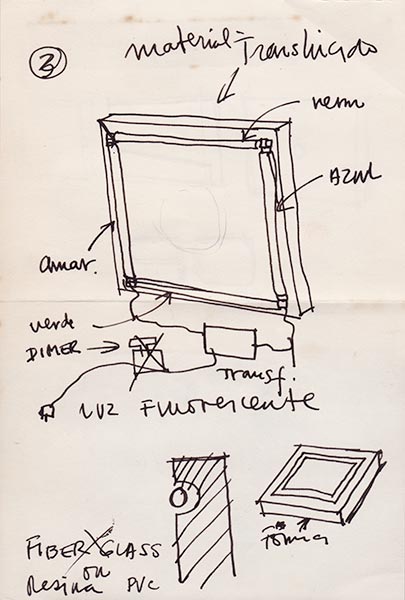 3
material = Translucido
verm
Azul
amar.
verde
DIMER
Transf.
LUZ FLUORESCENTE
FIBERGLASS
on
Resina PVC